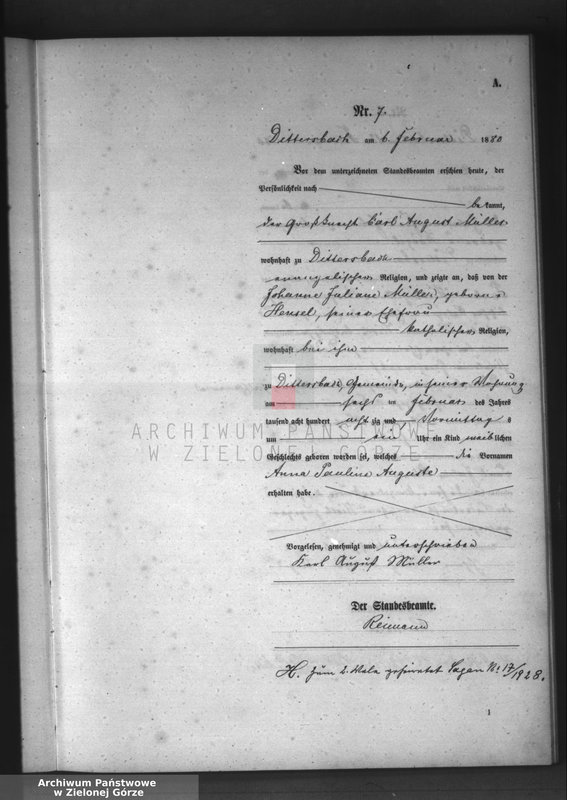 A.
Nr. 7.
Dittersbach am 6. Februar 1880
Vor dem unterzeichneten Standesbeamten erschien heute, der
Persönlichkeit nach
bekannt,
der Großknecht Carl August Müller
wohnhaft zu Dittersbach
evangelischer Religion, und zeigte an, daß von der
Johanne Juliane Müller, geborne
Hensel, seiner Ehefrau
katholischer Religion,
wohnhaft bei ihm
zu Dittersbach, Gemeinde, in seiner Wohnung
am sechs ten Februar des Jahres
tausend acht hundert achtzig und Vormittags
um ein Uhr ein Kind weiblichen
Geschlechts geboren worden sei, welches die Vornamen
Anna Pauline Auguste
erhalten habe.
Vorgelesen, genehmigt und unterschrieben
Karl August Müller
Der Standesbeamte.
Reimann
H. zum 2. Male geheiratet Sagan Nr. 17/1928.
1
ARCHIWUM PAŃSTWOWE
W ZIELONEJ GÓRZE
Archiwum Państwowe
w Zielonej Górze